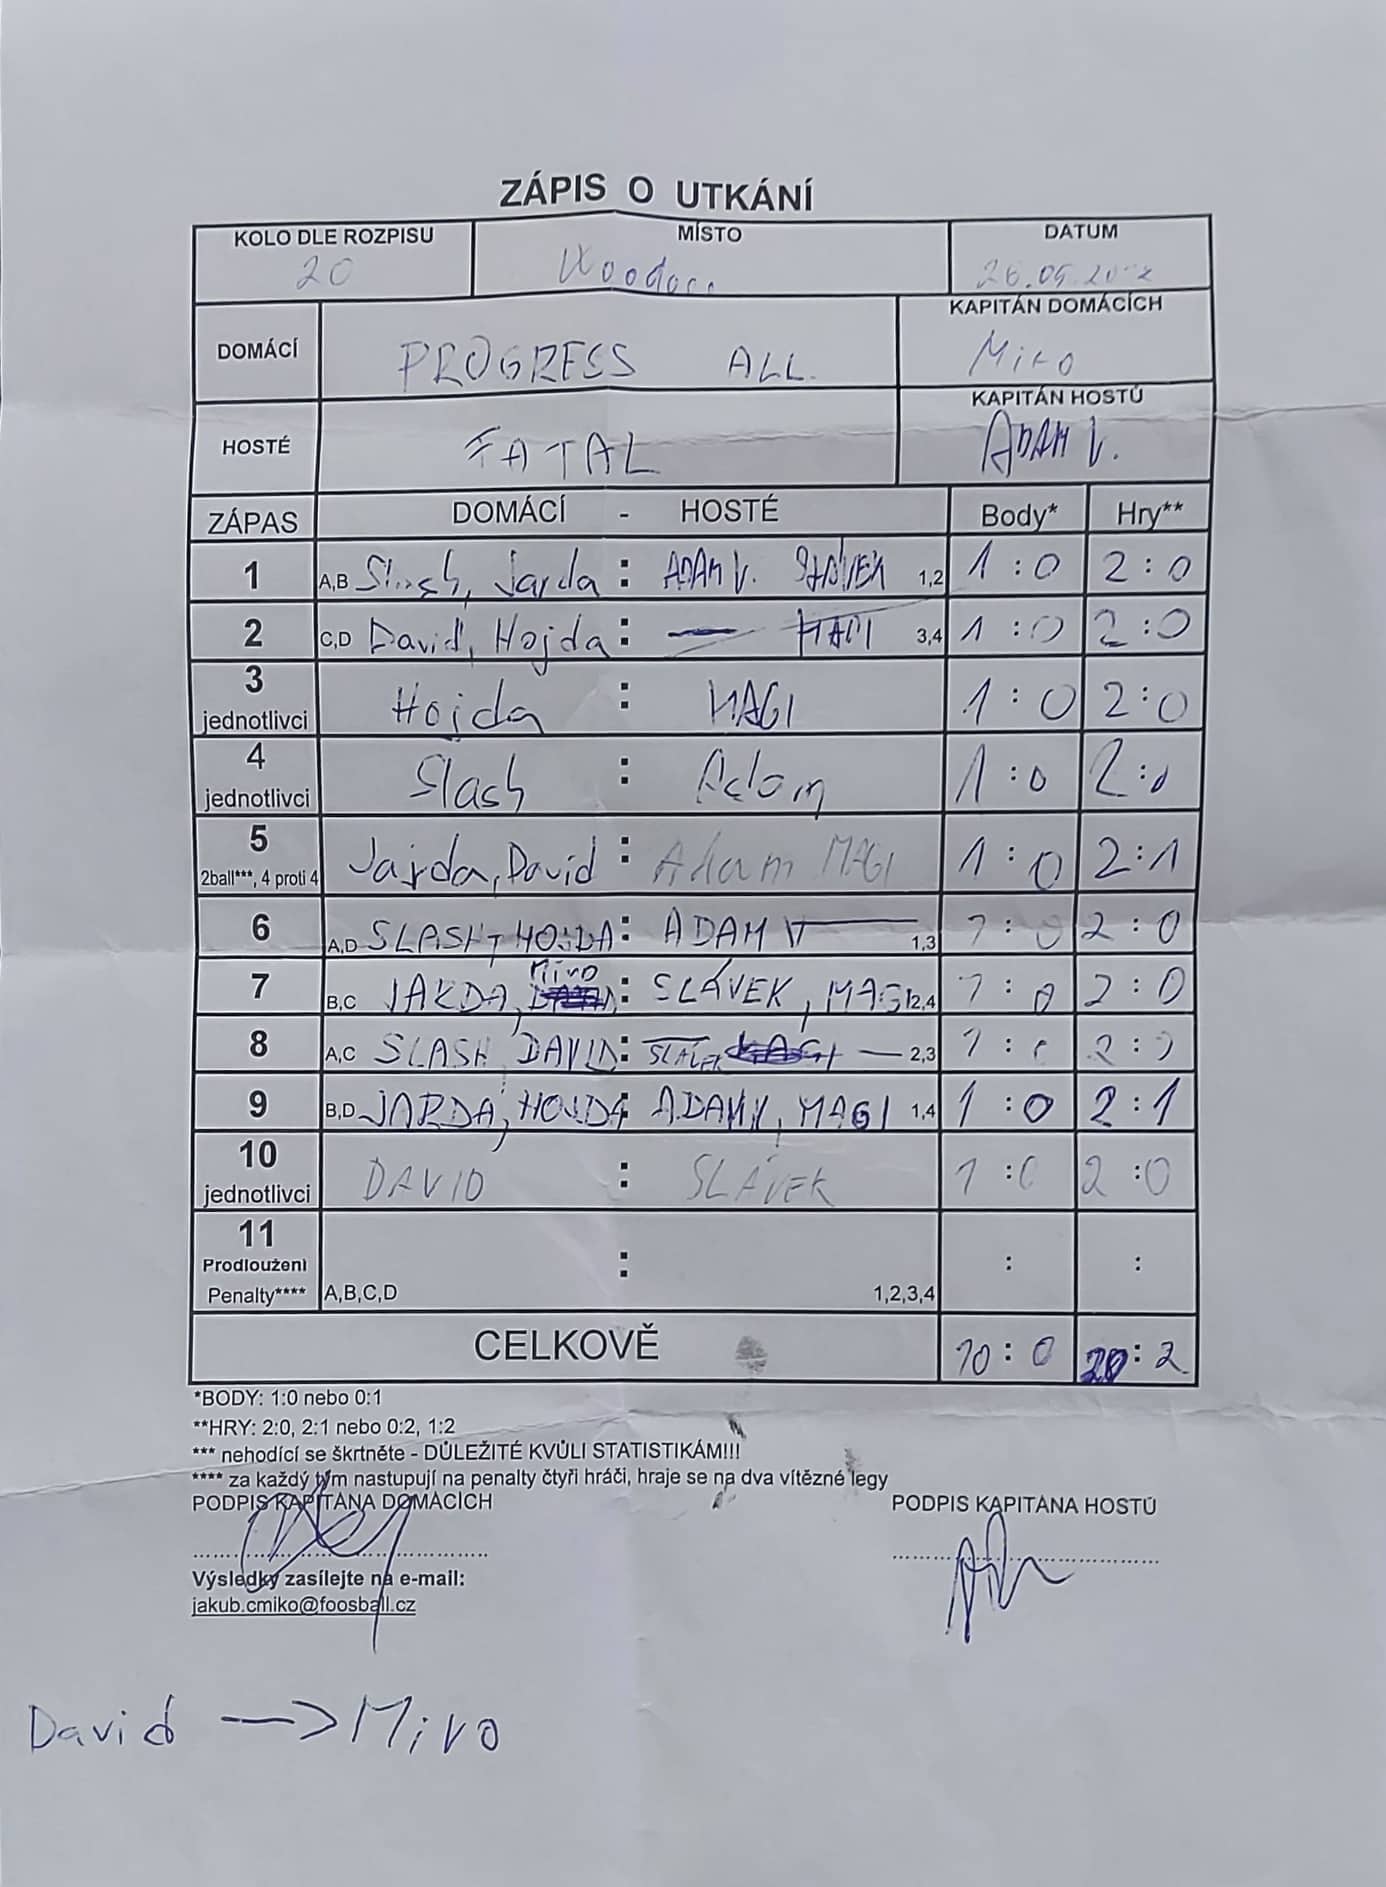 ZÁPIS O UTKÁNÍ
KOLO DLE ROZPISU MÍSTO DATUM
20 26.09.
KAPITÁN DOMÁCÍCH
DOMÁCÍ PROGRESS ALL. Miro
KAPITÁN HOSTŮ
HOSTÉ FATAL ADAM V.
ZÁPAS DOMÁCÍ - HOSTÉ Body* Hry**
1 A,B Slash, Jarda : ADAM V. SLÁVEK 1,2 1 : 0 2 : 0
2 C,D David, Hojda : — MAGI 3,4 1 : 0 2 : 0
3 jednotlivci Hojda : MAGI 1 : 0 2 : 0
4 jednotlivci Slash : Adam 1 : 0 2 : 0
5 2ball***, 4 proti 4 Jarda, David : Adam MAGI 1 : 0 2 : 1
6 A,D SLASH, HOJDA : ADAM V — 1,3 1 : 0 2 : 0
7 B,C JARDA, Miro : SLÁVEK, MAGI 2,4 1 : 0 2 : 0
8 A,C SLASH, DAVID : SLÁVEK — 2,3 1 : 0 2 : 0
9 B,D JARDA, HOJDA : ADAM V, MAGI 1,4 1 : 0 2 : 1
10 jednotlivci DAVID : SLÁVEK 1 : 0 2 : 0
11 Prodloužení : : :
Penalty**** A,B,C,D 1,2,3,4
CELKOVĚ 10 : 0 20 : 2
*BODY: 1:0 nebo 0:1
**HRY: 2:0, 2:1 nebo 0:2, 1:2
*** nehodící se škrtněte - DŮLEŽITÉ KVŮLI STATISTIKÁM!!!
**** za každý tým nastupují na penalty čtyři hráči, hraje se na dva vítězné legy
PODPIS KAPITÁNA DOMÁCÍCH PODPIS KAPITÁNA HOSTŮ
Výsledky zasílejte na e-mail:
jakub.cmiko@foosball.cz
David —> Miro